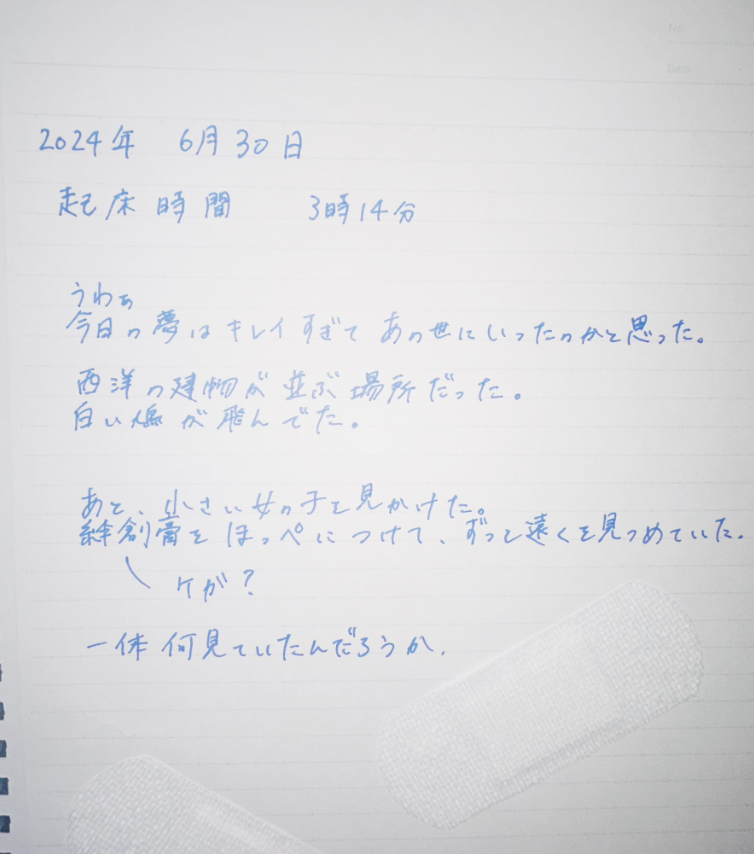 No.
Date
2024年 6月30日
起床時間 3時14分
うわぁ
今日の夢はキレイすぎてあの世にいったのかと思った。
西洋の建物が並ぶ場所だった。
白い鳩が飛んでた。
あと、小さい女の子を見かけた。
絆創膏をほっぺにつけて、ずっと遠くを見つめていた。
ケガ?
一体何見ていたんだろうか.